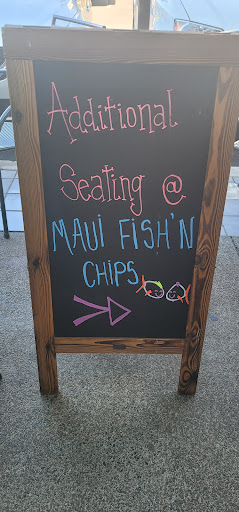 Additional
Seating @
MAUI FISH'N
CHIPS